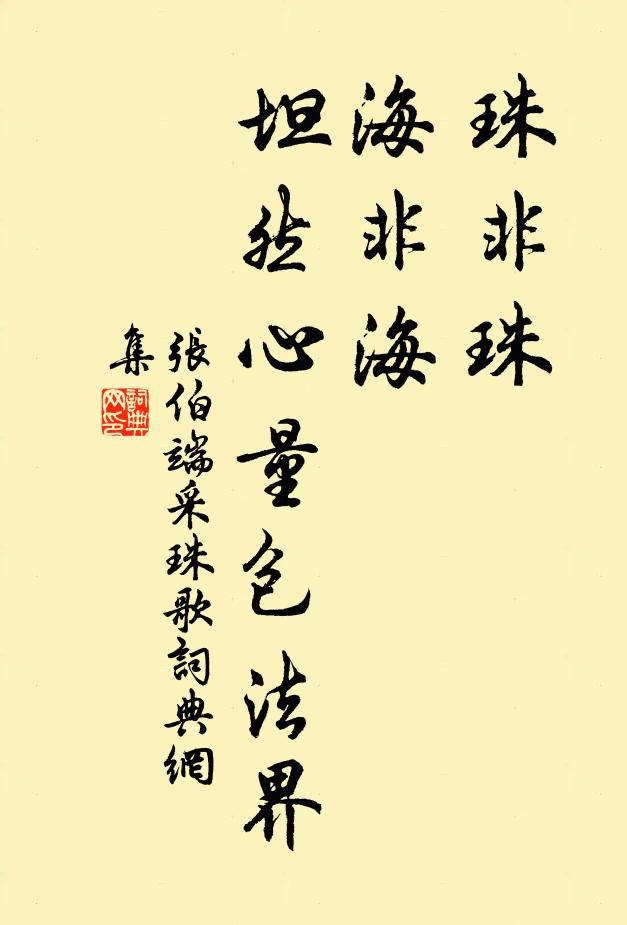 珠非珠
海非海
坦然心量包法界
張伯端采珠歌詞典網
集
詞典
网印